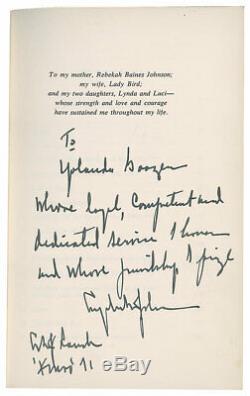 To my mother, Rebekah Baines Johnson;
my wife, Lady Bird;
and my two daughters, Lynda and Luci—
whose strength and love and courage
have sustained me throughout my life.
To
Yolanda Boozer
Whose loyal, Competent and
dedicated service I honor
and whose friendship I prize
Lyndon B Johnson
LBJ Ranch
'Xmas' 71
ebay